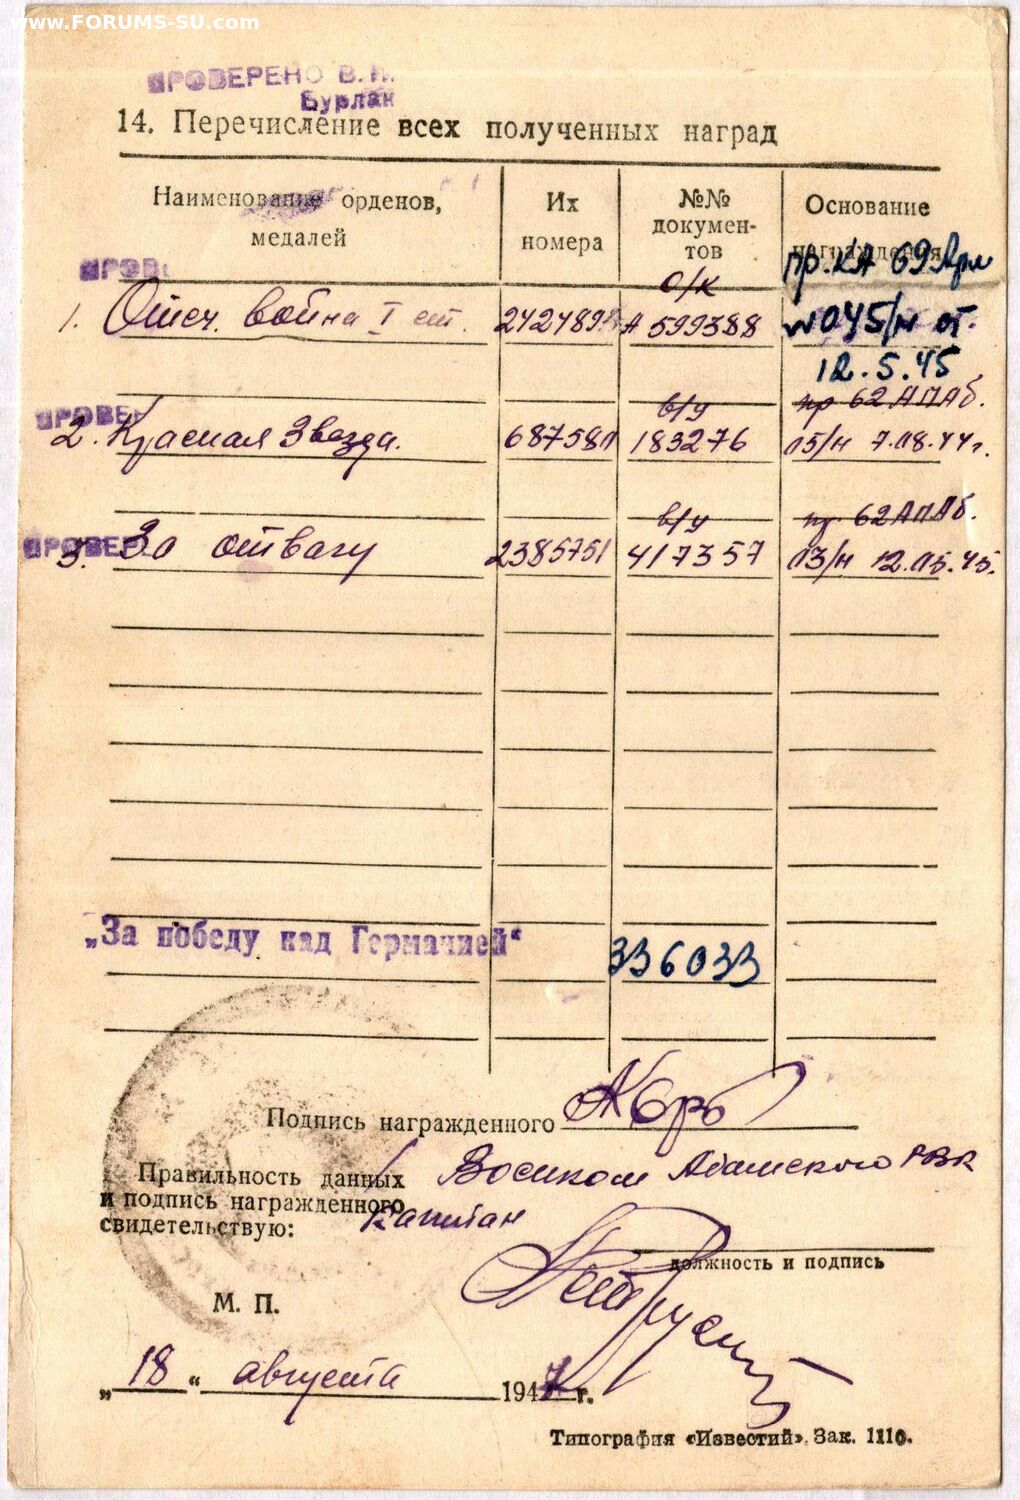 www.FORUMS-SU.com
ПРОВЕРЕНО В.П.
Бурлак
14. Перечисление всех полученных наград
Наименование орденов, медалей
Их номера
№№ документов
Основание награждения
ПРОВЕ
1. Отеч. война I ст. 242489 о/к А 599388 пр. КА 69 Арм № 045/н от. 12.5.45
ПРОВЕР
2. Красная Звезда. 687581 в/у 183276 пр 62 АПАБ. 05/н 7.08.44г.
ПРОВЕР
3. За отвагу 2385751 в/у 417357 пр. 62 АПАБ. 03/н 12.05.45.
„За победу над Германией“ 336033
Подпись награжденного
Правильность данных
и подпись награжденного
свидетельствую:
Военком РВК
Капитан
должность и подпись
М. П.
„18“ августа 1947 г.
Типография «Известий». Зак. 1110.